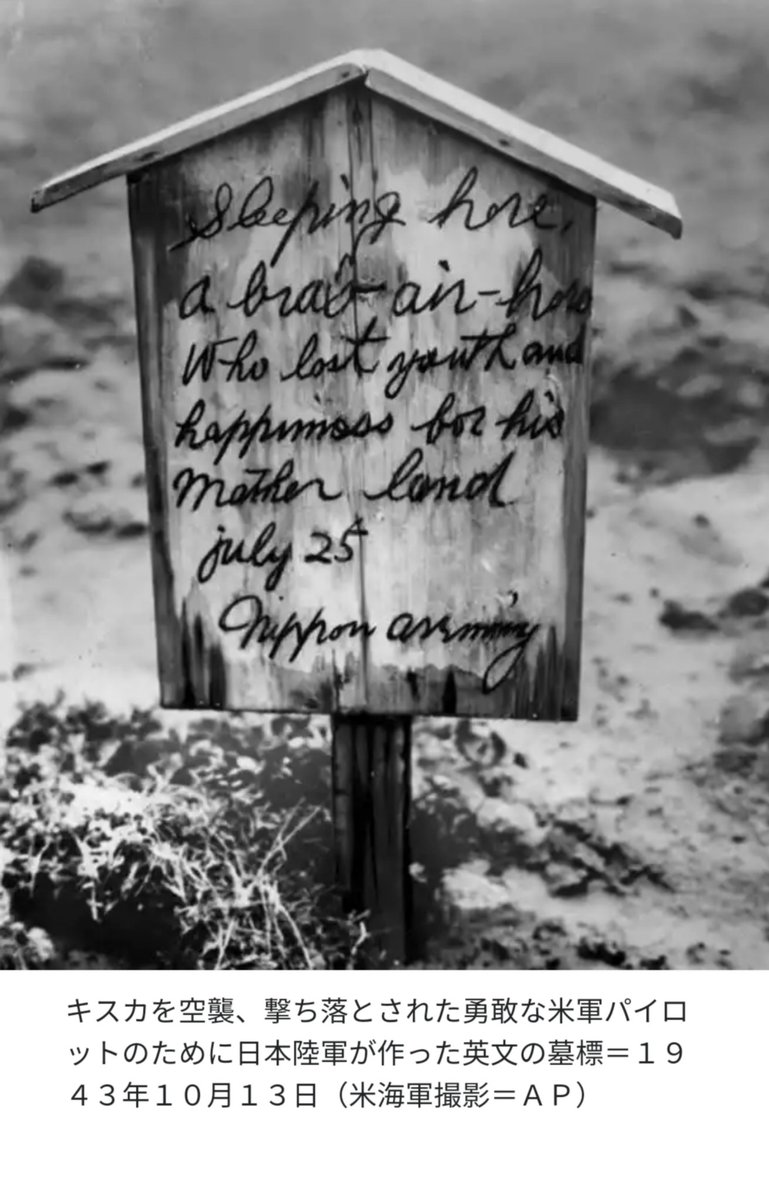 Sleeping here,
a air-hero
Who lost youth and
happiness for his
Mother land
july 25
Nippon
キスカを空襲、撃ち落とされた勇敢な米軍パイロ
ットのために日本陸軍が作った英文の墓標＝１９
４３年１０月１３日（米海軍撮影＝ＡＰ）